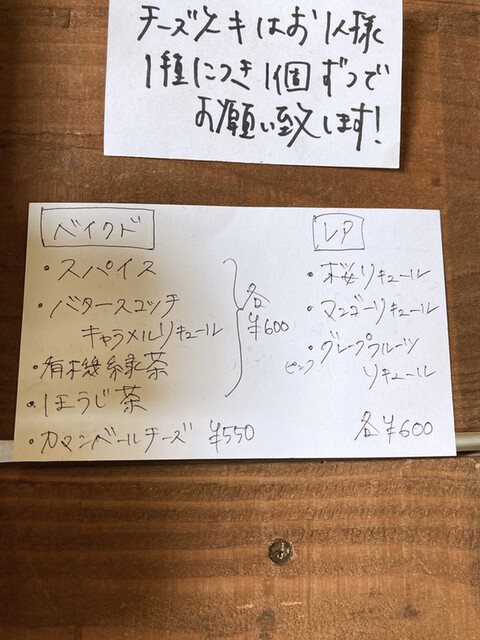 チーズケーキはお1人様
1種につき1個ずつで
お願い致します!
ベイクド
・スパイス
・バタースコッチ
キャラメルリキュール
・有機緑茶
・ほうじ茶
各
¥600
・カマンベールチーズ ¥550
レア
・桜リキュール
・マンゴーリキュール
・グレープフルーツ
ピンク
リキュール
各¥600